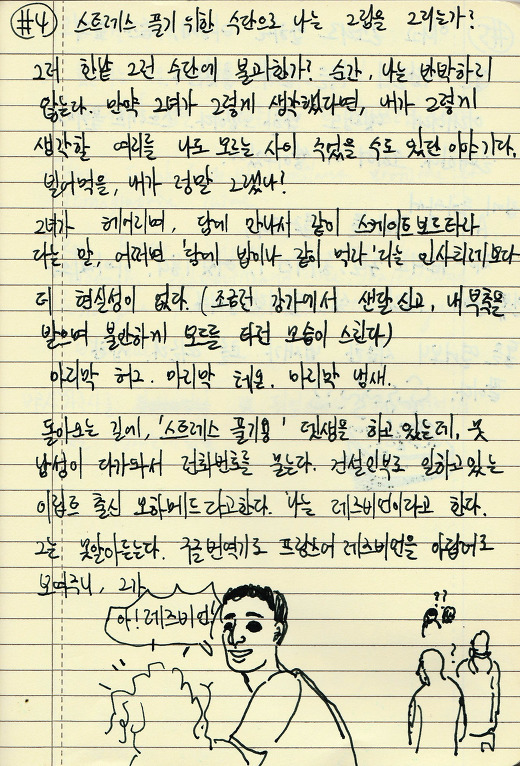 #4 스트레스 풀기 위한 수단으로 나는 그림을 그리는가?
그저 한낱 그런 수단에 불과한가? 순간, 나는 반박하지
않는다. 만약 그녀가 그렇게 생각했다면, 내가 그렇게
생각할 여지를 나도 모르는 사이 주었을 수도 있단 이야기다.
빌어먹을, 내가 정말 그랬나!
그녀가 헤어지며, 담에 만나서 같이 스케이트보드타자
다는 말, 어쩌면 '담에 밥이나 같이 먹자'라는 인사치레보다
더 현실성이 없다. (조금전 강가에서 샌달 신고, 내 부축을
받으며 불안하게 보드를 타던 모습이 스친다)
마지막 허그. 마지막 체온. 마지막 냄새.
돌아오는 길에, '스트레스 풀기용' 뎃생을 하고 있는데, 웃
남성이 다가와서 전화번호를 묻는다. 건설인부로 일하고있는
이집트 출신 모하메드라고한다. 나는 레즈비언이라고 한다.
그는 못알아듣는다. 구글번역기로 프랑스어 레즈비언을 아랍어로
보여주니, 그가
아! 레즈비언!
??
?